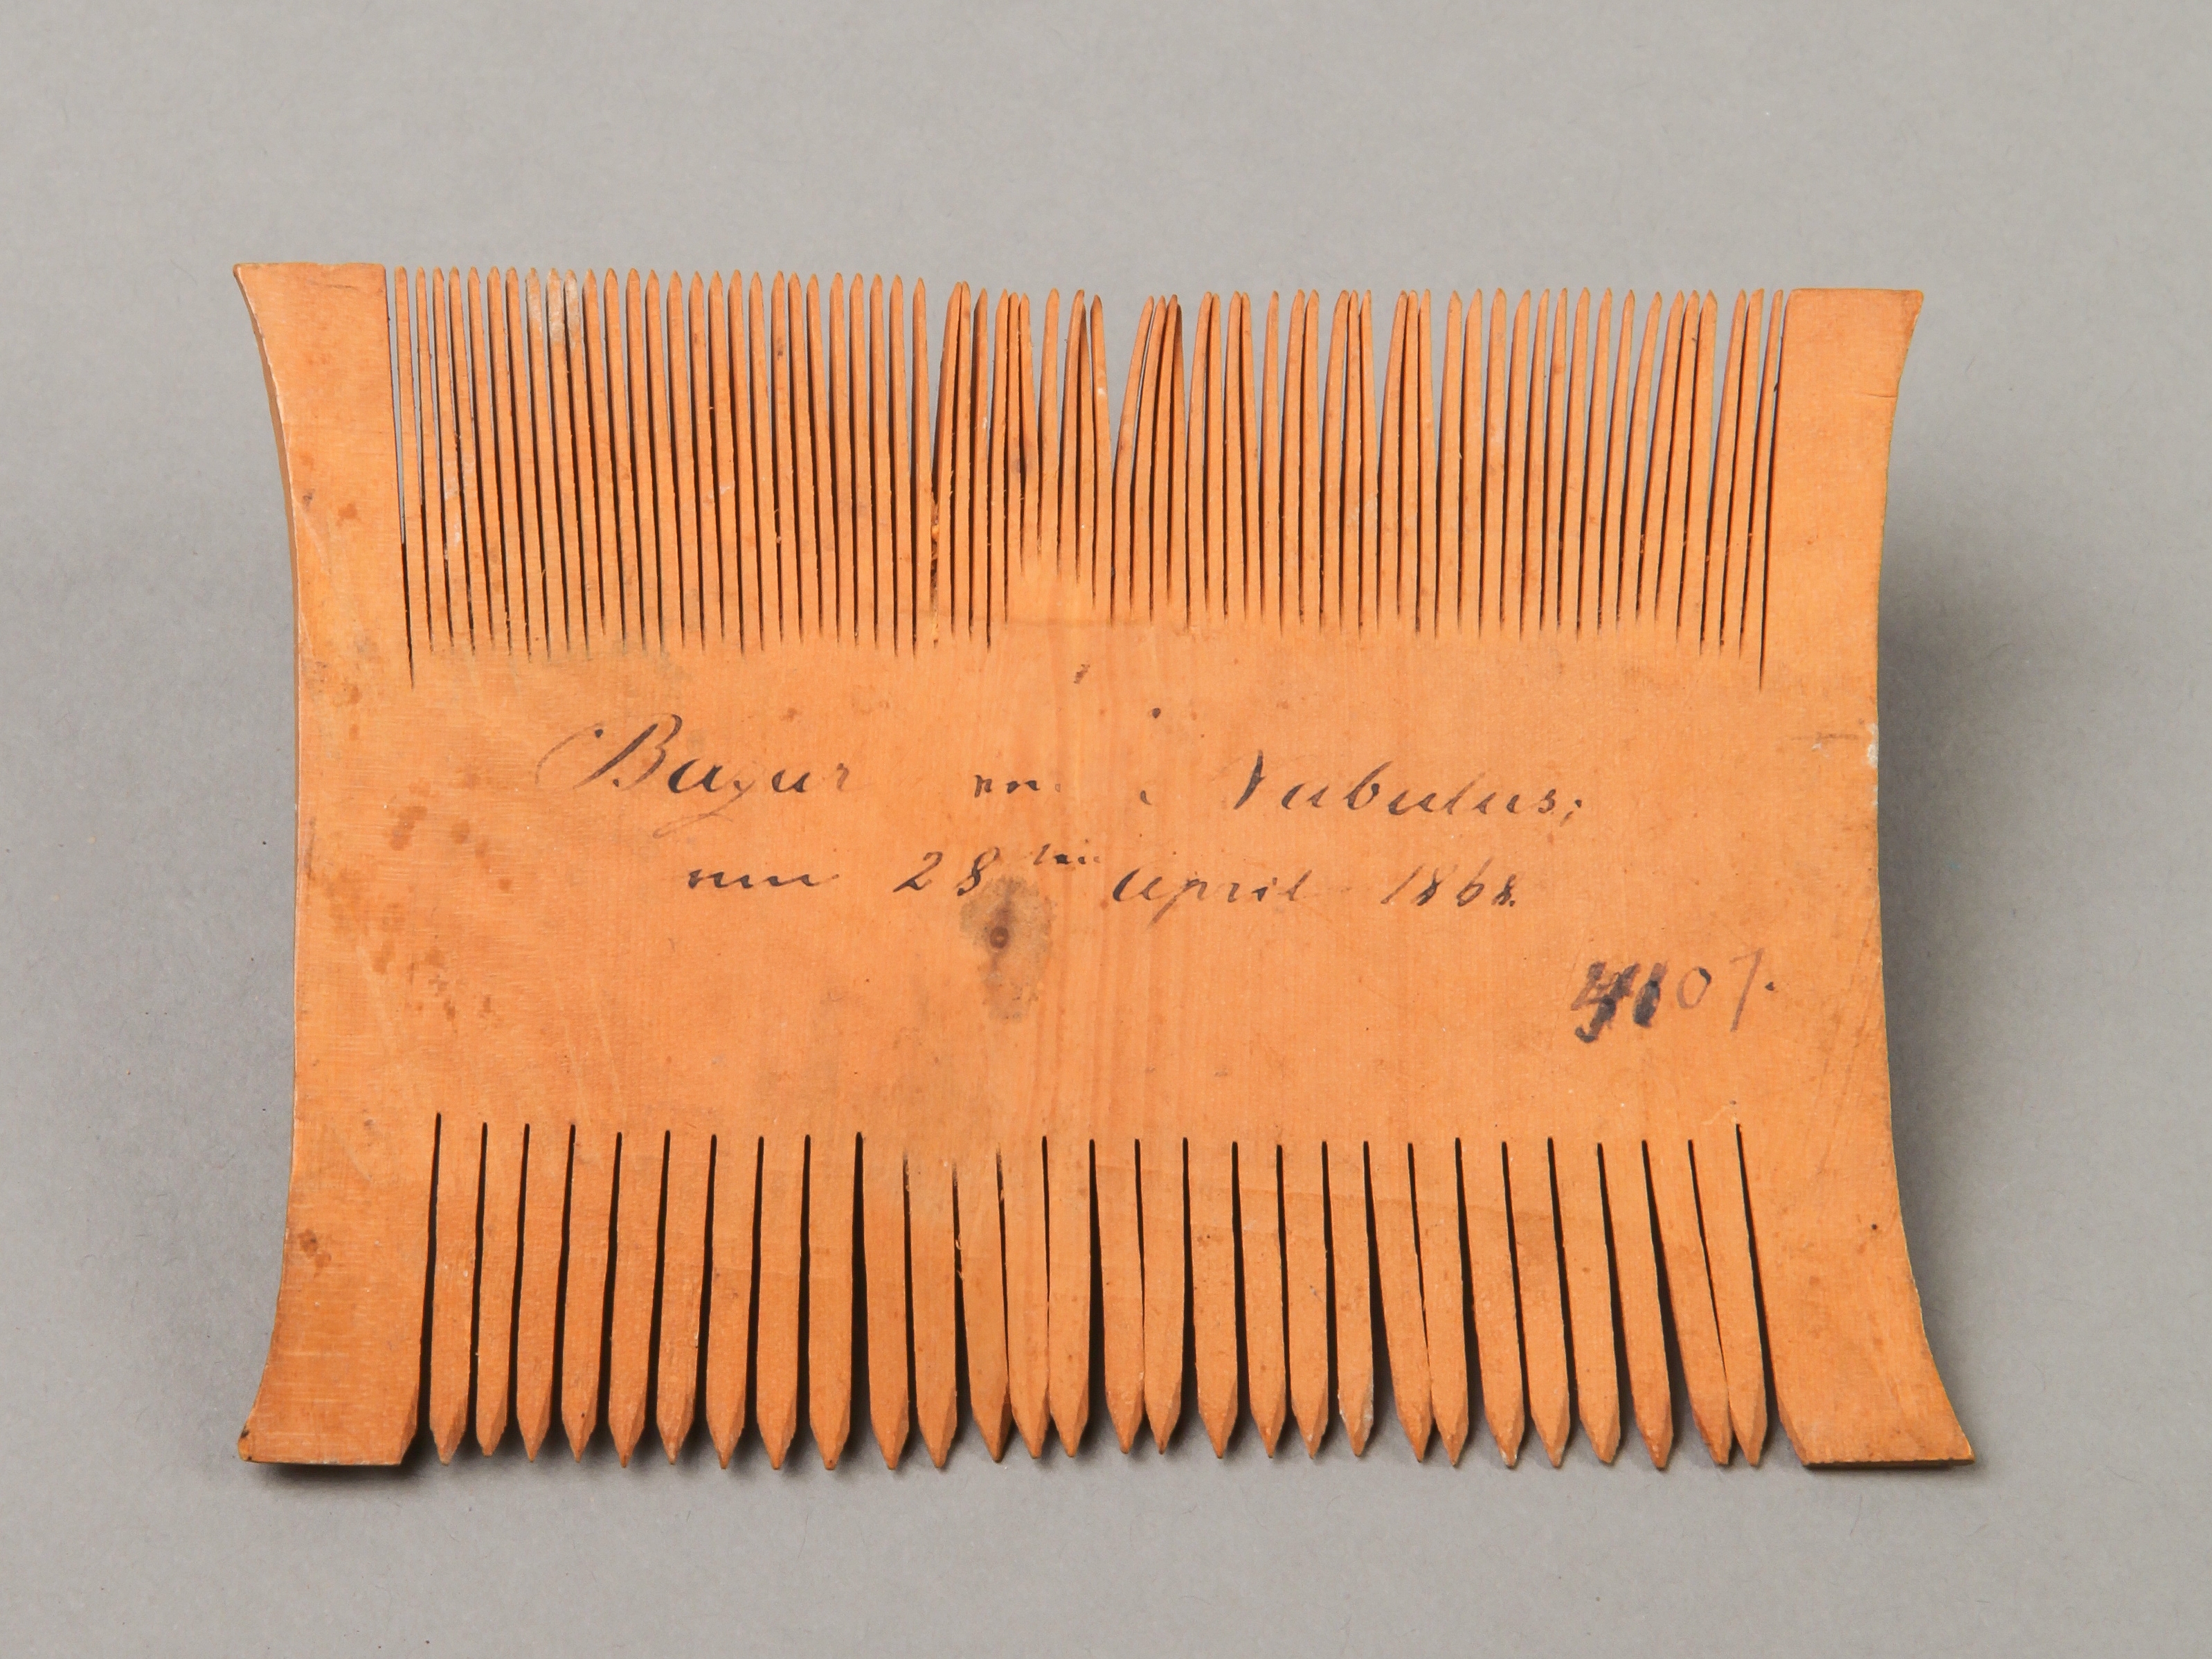 Bazar von Nabulus;
am 28ten April 1868.
4107.